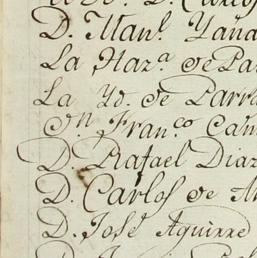 D. Man.l Yaña
La Haz.a de Pa
La Yd. de Parra
Dn Fran.co Cam
D. Rafael Diaz
D. Carlos de A
D. José Aguirre